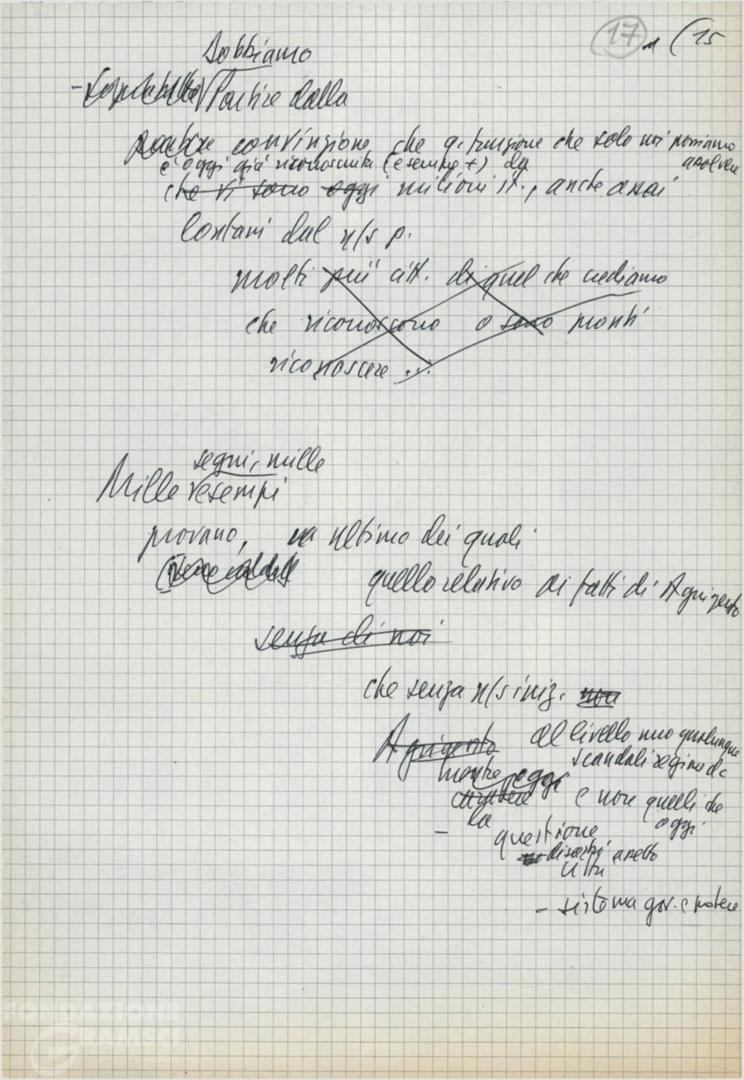 17 (15
Dobbiamo
- Partire dalla
convinzione, che q. funzione che solo noi possiamo
assolvere
è oggi già riconosciuta (e sempre +) da
che vi sono oggi milioni it., anche assai
lontani dal n/s p.
molti più citt. di quel che crediamo
che riconoscono o sono pronti
riconoscere ...
segni, mille
Mille esempi
provano, ultimo dei quali
quello relativo ai fatti di Agrigento
senza di noi
che senza n/s iniz. non
Agrigento al livello uno qualunque
scandali regime dc
mentre oggi
e non quelli che
oggi
la
- questione
- sistema gov. e potere
FONDAZIONE
GRAMSCI